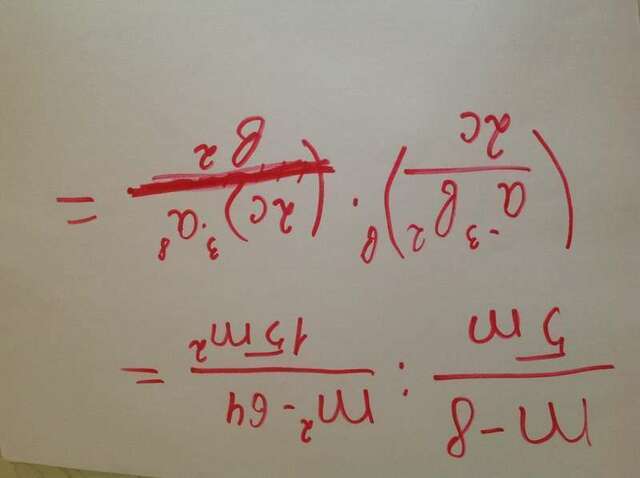 (m-8)/(5m) : (m²-64)/(15m²) =
((a⁻³b²)/(2c))ᵇ · ((2c)³·a⁸)/(b²) =